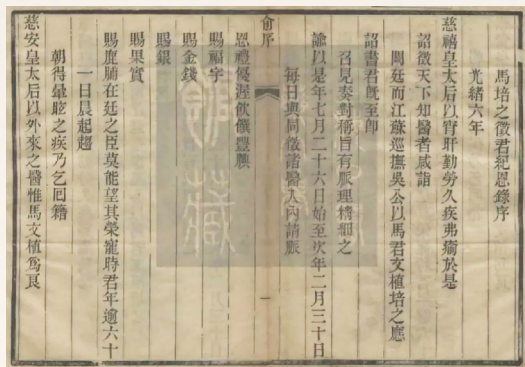 馬培之徵君紀恩錄序
光緒六年
慈禧皇太后以宵旰勤勞久疾弗瘉於是
詔徵天下知醫者咸詣
闕廷而江蘇巡撫吳公以馬君文植培之應
詔書君既至卽
召見奏對稱旨有脈理精細之
諭以是年七月二十六日始至次年二月三十日
每日與同徵諸醫入內請脈
俞序
一
恩禮優渥飲饌豐腆
賜福字
賜金錢
賜銀
賜果實
賜鹿脯在廷之臣莫能望其榮寵時君年逾六十
一日晨起趨
朝得暈眩之疾乃乞囘籍
慈安皇太后以外來之醫惟馬文植爲良